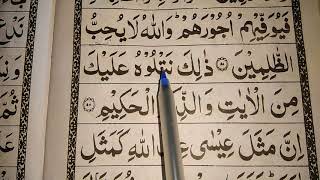 فَيُوَفِّيْهِمْ اُجُوْرَهُمْ ؕ وَاللّٰهُ لَا يُحِبُّ
الظّٰلِمِيْنَ ۝۵۷ ذٰلِكَ نَتْلُوْهُ عَلَيْكَ
مِنَ الْاٰيٰتِ وَالذِّكْرِ الْحَكِيْمِ ۝۵۸
اِنَّ مَثَلَ عِيْسٰى عِنْدَ اللّٰهِ كَمَثَلِ